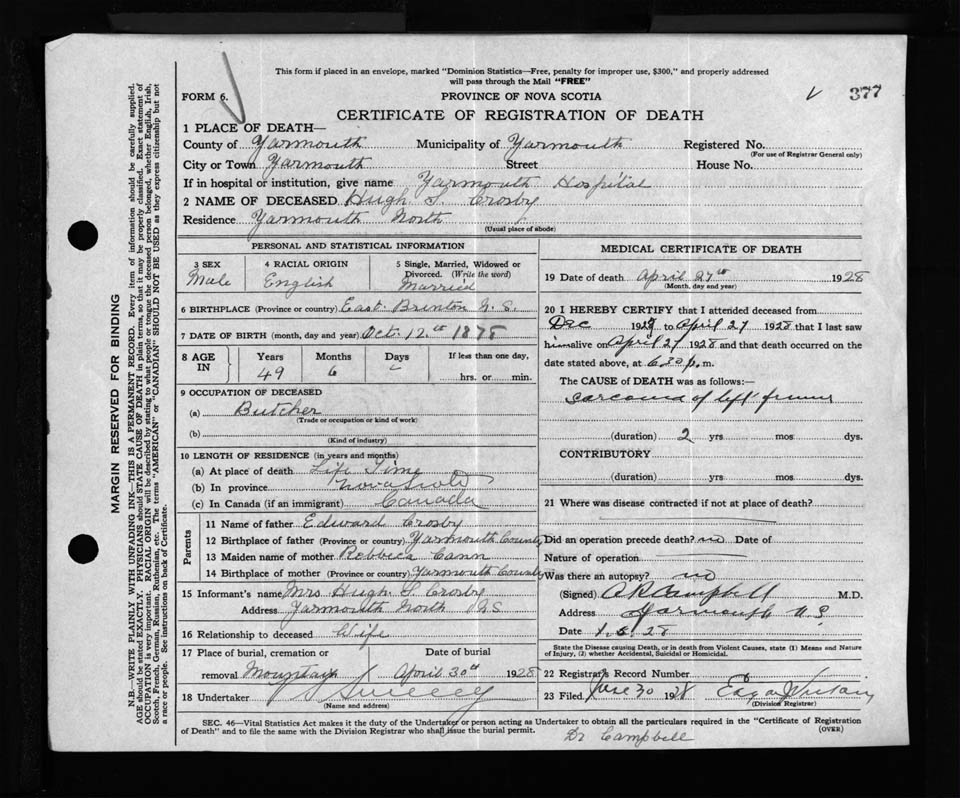 This form if placed in an envelope, marked "Dominion Statistics—Free, penalty for improper use, $300," and properly addressed
will pass through the Mail "FREE"
FORM 6.
PROVINCE OF NOVA SCOTIA
377
CERTIFICATE OF REGISTRATION OF DEATH
1 PLACE OF DEATH—
County of Yarmouth Municipality of Yarmouth Registered No.
(For use of Registrar General only)
City or Town Yarmouth Street House No.
If in hospital or institution, give name Yarmouth Hospital
2 NAME OF DECEASED Hugh S. Crosby
Residence Yarmouth North
(Usual place of abode)
PERSONAL AND STATISTICAL INFORMATION
3 SEX Male
4 RACIAL ORIGIN English
5 Single, Married, Widowed or
Divorced. (Write the word)
Married
6 BIRTHPLACE (Province or country) East N.S.
7 DATE OF BIRTH (month, day and year) Oct. 12th 1878
8 AGE IN
Years Months Days If less than one day,
49 6
hrs. or min.
9 OCCUPATION OF DECEASED
(a) Butcher
(Trade or occupation or kind of work)
(b)
(Kind of industry)
10 LENGTH OF RESIDENCE (in years and months)
(a) At place of death Life Time
(b) In province Nova Scotia
(c) In Canada (if an immigrant) Canada
Parents
11 Name of father Edward Crosby
12 Birthplace of father (Province or country) Yarmouth County
13 Maiden name of mother Rebbeca Cann
14 Birthplace of mother (Province or country) Yarmouth County
15 Informant's name Mrs Hugh S. Crosby
Address Yarmouth North N.S
16 Relationship to deceased Wife
17 Place of burial, cremation or Date of burial
removal April 30th 1928
18 Undertaker Sweeney
(Name and address)
MEDICAL CERTIFICATE OF DEATH
19 Date of death April 27th 1928
(Month, day and year)
20 I HEREBY CERTIFY that I attended deceased from
Dec to April 27 1928 that I last saw
him alive on April 27 1928 and that death occurred on the
date stated above, at 6.30 p.m.
The CAUSE of DEATH was as follows:—
Sarcoma of left femur
(duration) 2 yrs. mos. dys.
CONTRIBUTORY
(duration) yrs. mos. dys.
21 Where was disease contracted if not at place of death?
Did an operation precede death? no Date of
Nature of operation
Was there an autopsy? no
(Signed) Campbell M.D.
Address Yarmouth N.S.
Date 1.5.28
State the Disease causing Death, or in death from Violent Causes, state (1) Means and Nature
of Injury, (2) whether Accidental, Suicidal or Homicidal.
22 Registrar's Record Number
23 Filed June 30 1928
(Division Registrar)
SEC. 46—Vital Statistics Act makes it the duty of the Undertaker or person acting as Undertaker to obtain all the particulars required in the "Certificate of Registration
of Death" and to file the same with the Division Registrar who shall issue the burial permit.
(OVER)
Dr Campbell
MARGIN RESERVED FOR BINDING
N.B.—WRITE PLAINLY, WITH UNFADING INK—THIS IS A PERMANENT RECORD. Every item of information should be carefully supplied.
AGE should be stated EXACTLY. PHYSICIANS should STATE CAUSE OF DEATH in plain terms, so that it may be properly classified. Exact statement of
OCCUPATION is very important. RACIAL ORIGIN will be described by stating to what people or tongue the deceased person belonged, whether English, Irish,
Scotch, French, German, Russian, Ruthenian, etc. The terms "AMERICAN" or "CANADIAN" SHOULD NOT BE USED as they express citizenship but not
a race or people. See instructions on back of Certificate.